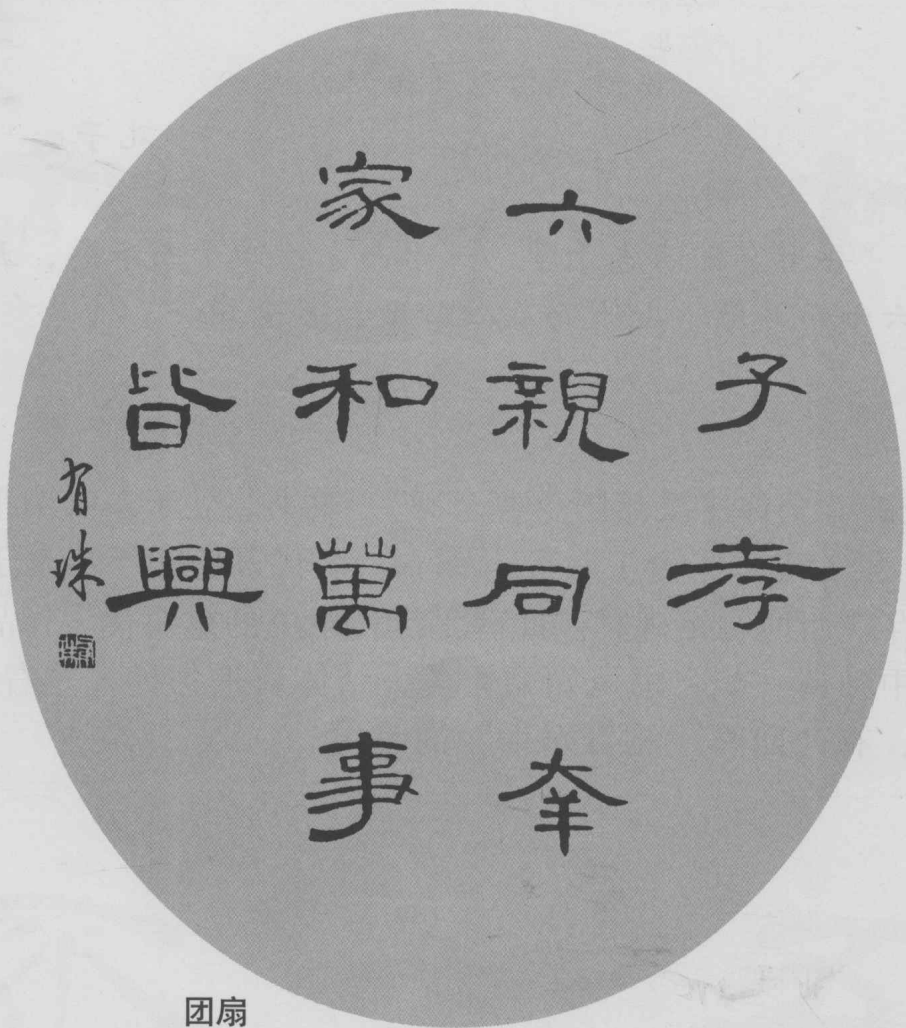 子孝
六親同幸
家和萬事
皆興
有珠
团扇